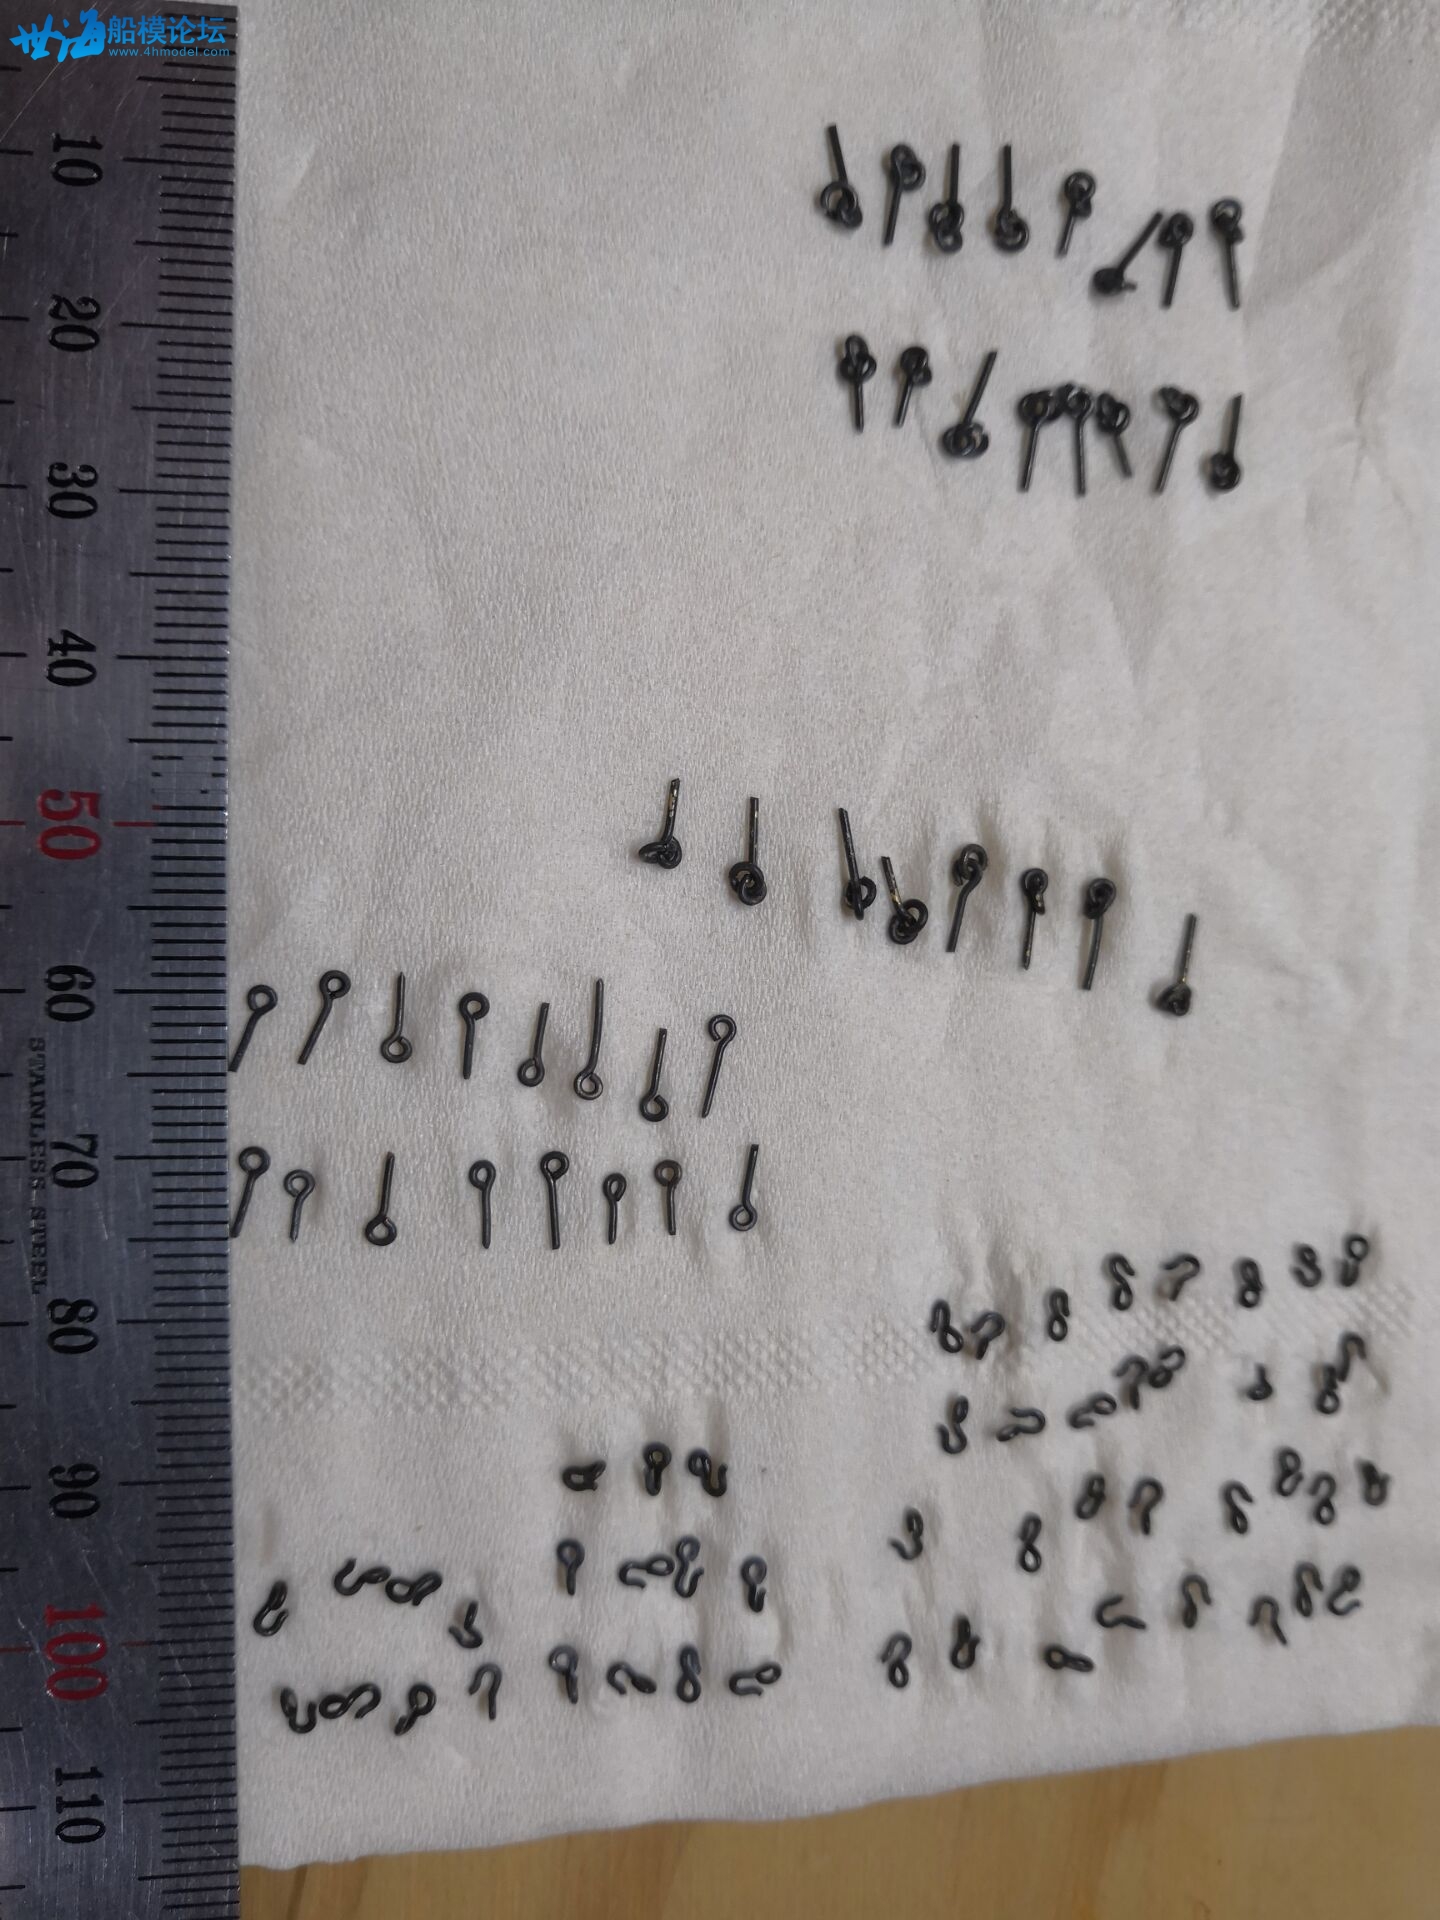 世海船模论坛
www.4hmodel.com
10
20
30
40
50
60
70
80
90
100
110
STAINLESS STEEL